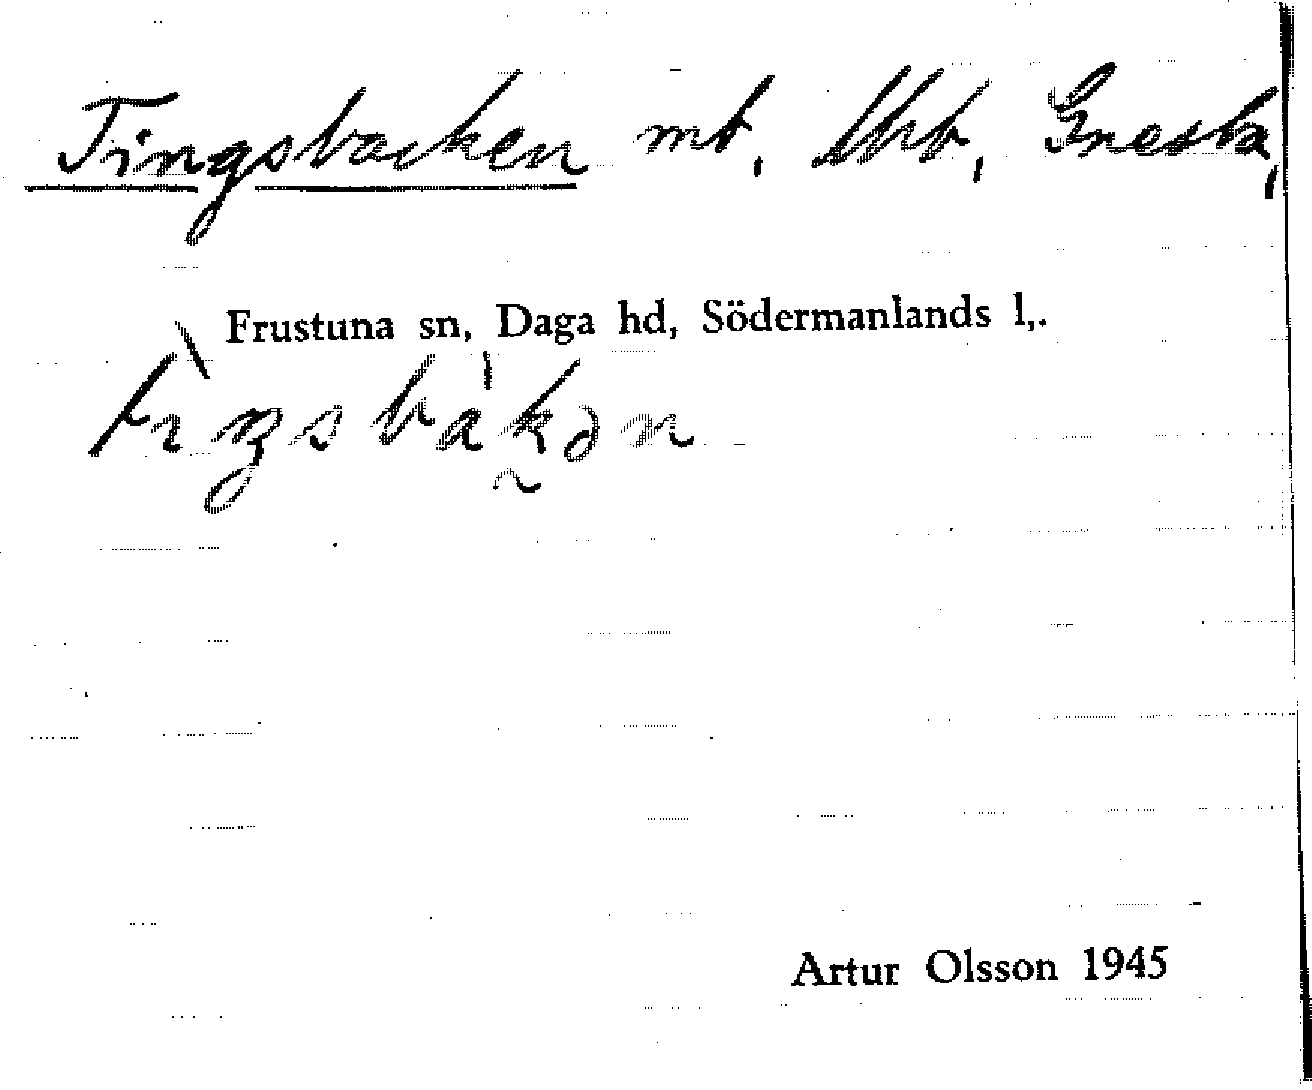 Tingsbacken mt. Urb, Gnesta,
Frustuna sn, Daga hd, Södermanlands l,.
Artur Olsson 1945